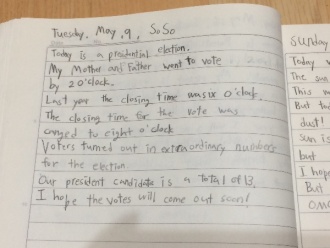 Tuesday, May, 9, SoSo
Today is a presidential election.
My Mother and Father went to vote
by 2 o'clock.
Last year the closing time was six o'clock,
The closing time for the vote was
canged to eight o'clock
Voters turned out in extraordinary numbers
for the election.
Our president candidate is a total of 13.
I hope the votes will come out soon!
Sunday
Today
The su
This w
But
dust!
sun is
but
I hope
But
OMG